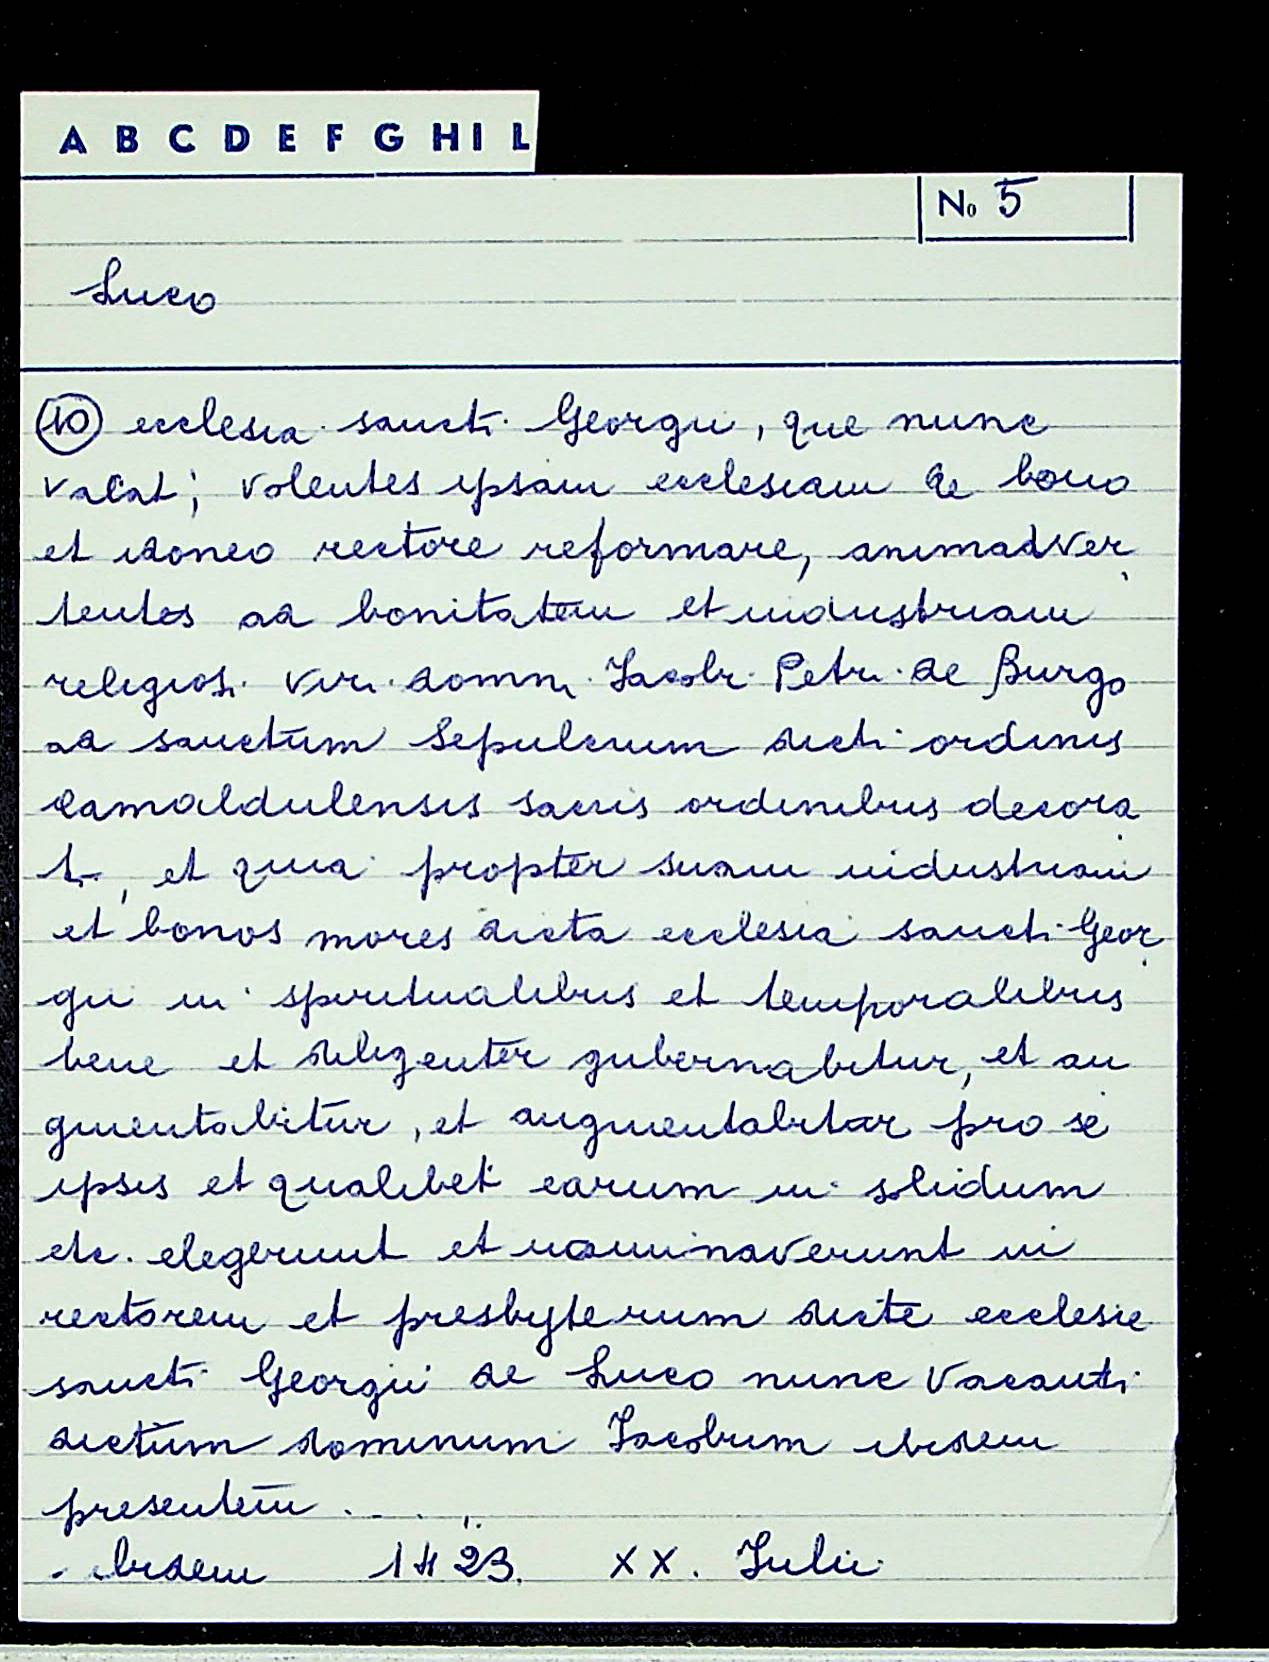 A B C D E F G H I L
No 5
Luco
10 ecclesia sancti Georgii, que nunc
vacat; volentes ipsam ecclesiam de bono
et idoneo rectore reformare, animadver
tentes ad bonitatem et industriam
religiosi viri domni Jacobi Petri de Burgo
ad sanctum Sepulcrum dicti ordinis
camaldulensis sacris ordinibus decora
ti, et quia propter suam industriam
et bonos mores dicta ecclesia sancti Geor
gii in spiritualibus et temporalibus
bene et diligenter gubernabitur, et au
gmentabitur, et augmentabitur pro se
ipsis et qualibet earum in solidum
etc. elegerunt et nominaverunt in
rectorem et presbyterum dicte ecclesie
sancti Georgii de Luco nunc vacanti
dictum dominum Jacobum ibidem
presentem . . . .
- ibidem 1423. XX. Julii